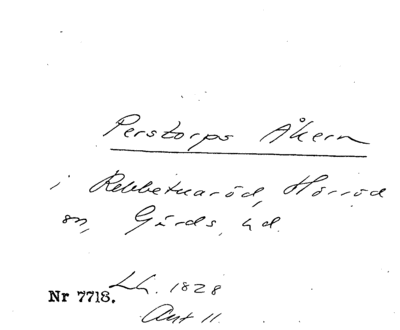 Perstorps Åkern
i Rebbetuaröd, Hörröd
sn, Gärds, hd.
Lh. 1828
Nr 7718.
Akt 11.